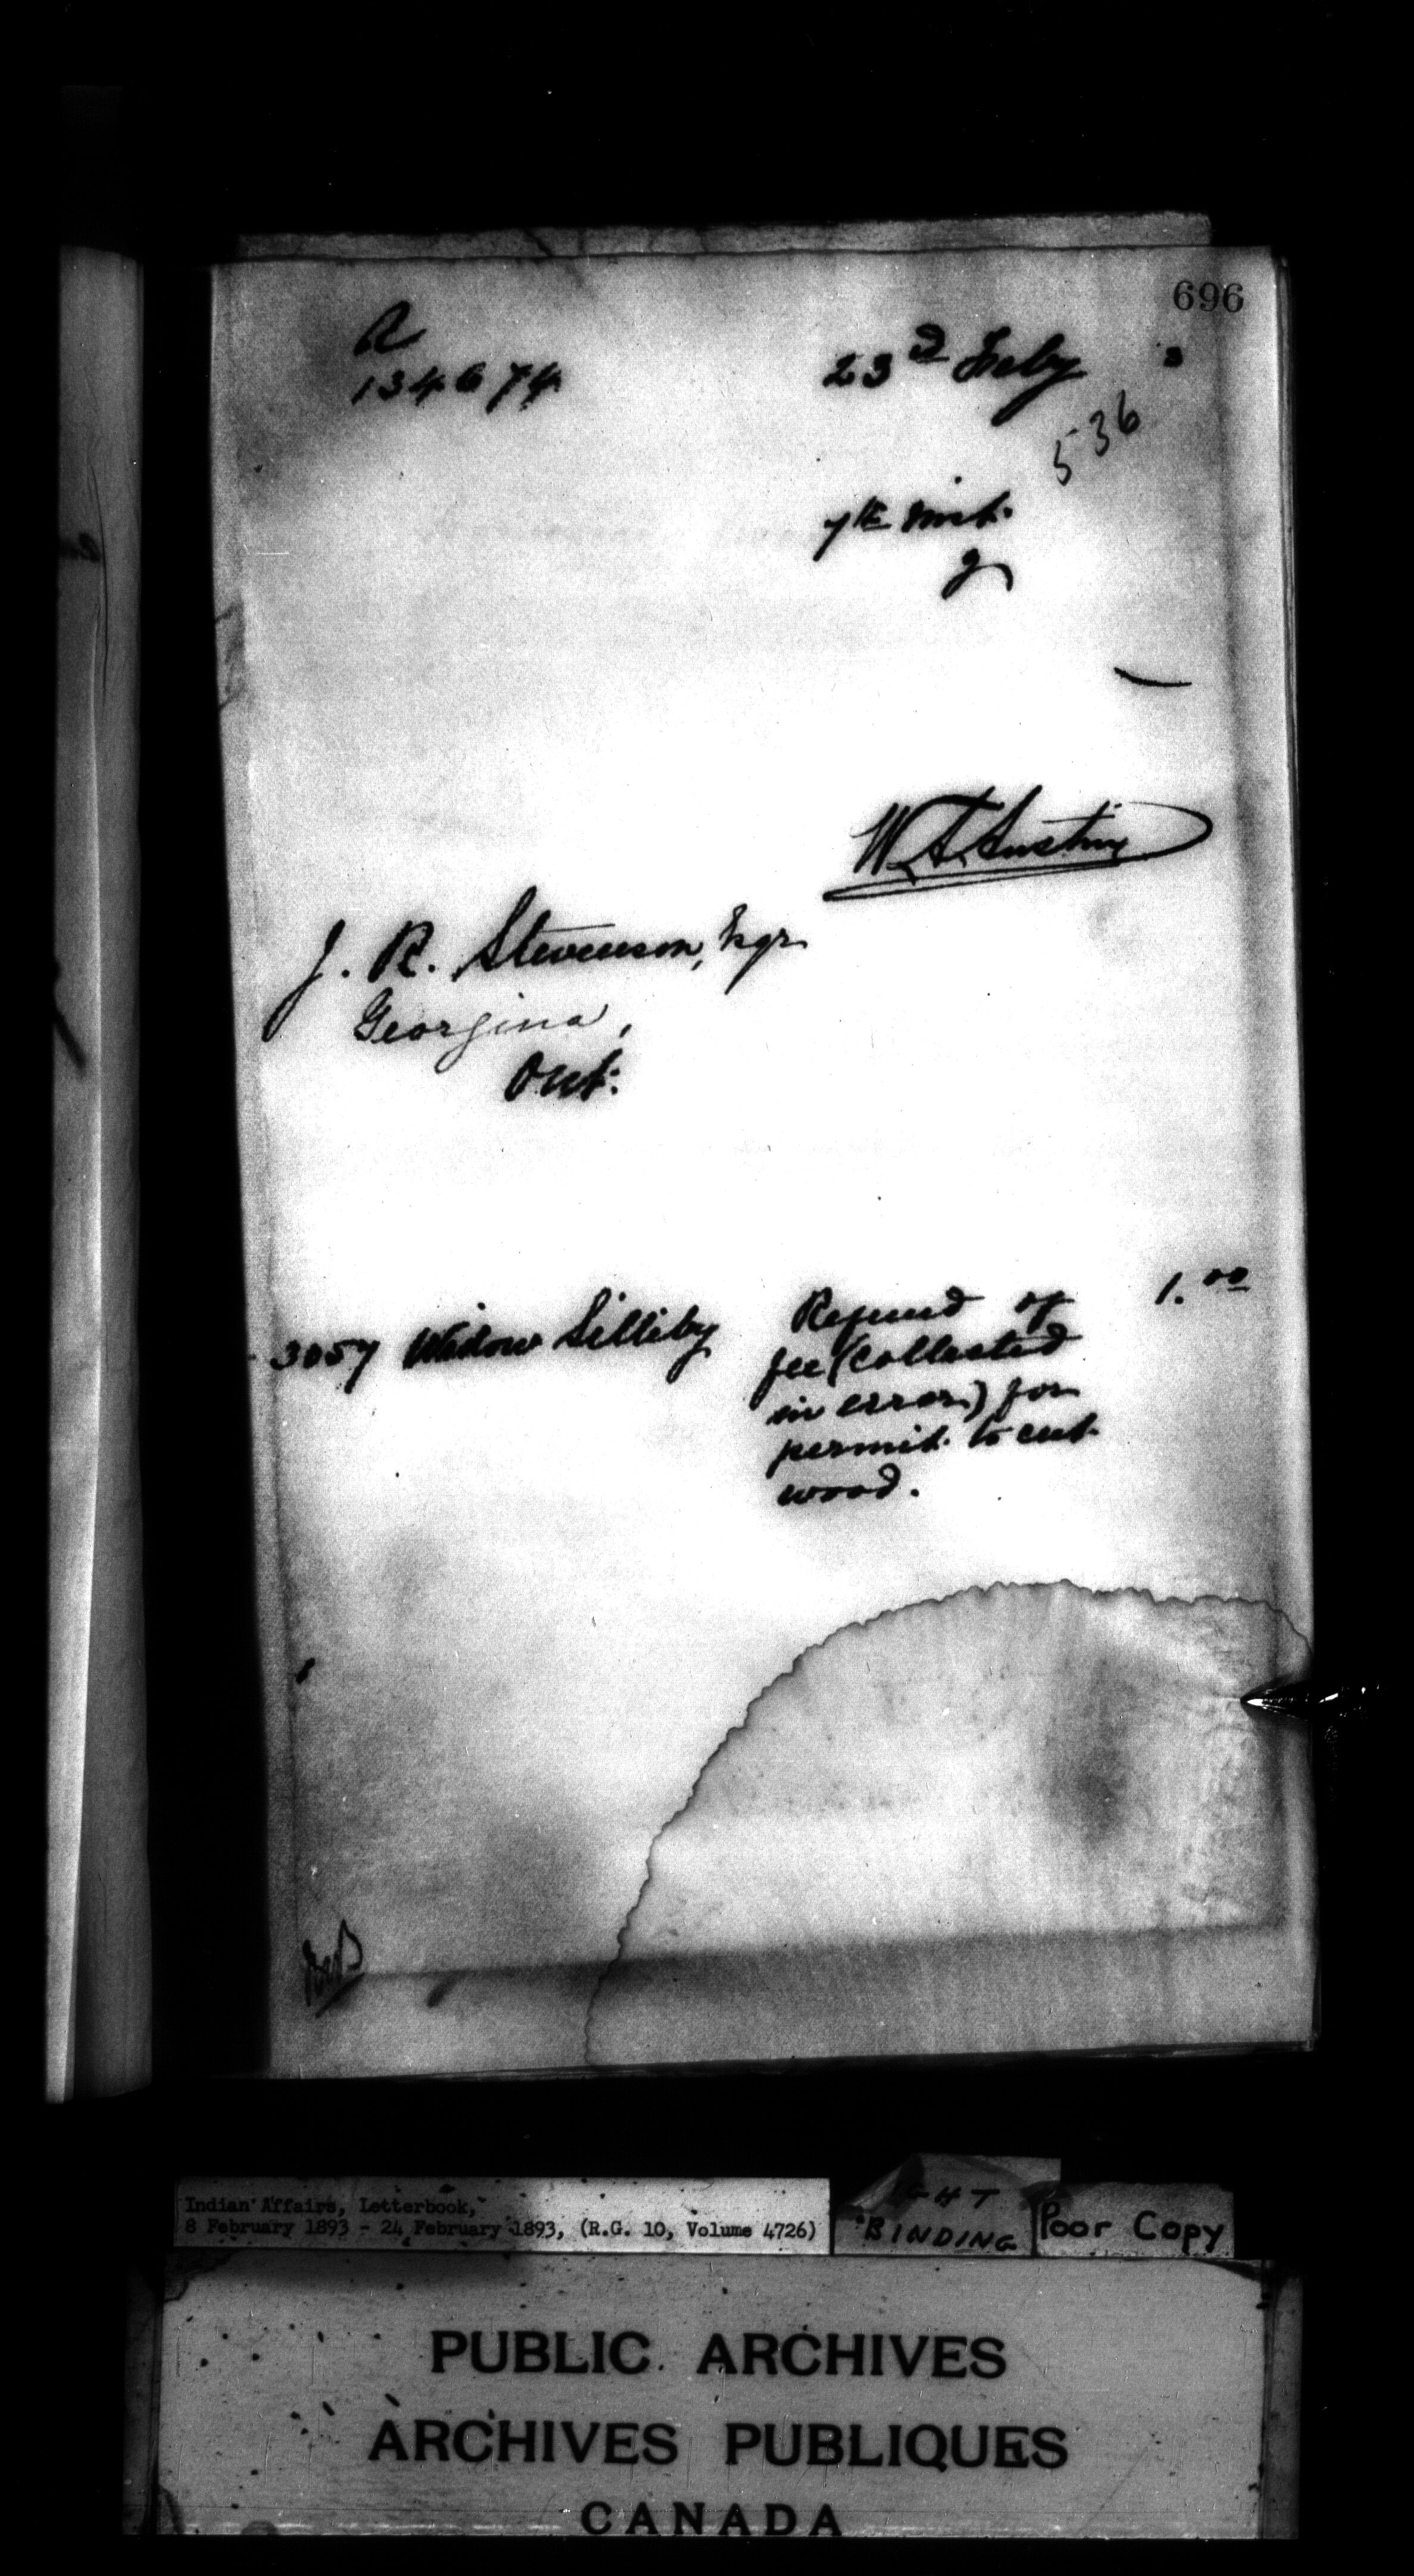 696
R
134674
23d Feby 3
536
7th inst.
W. A. Austin
J. R. Stevenson, Esqr
Georgina,
Ont.
3057 Widow Silliby Refund of 1.00
fee (collected
in error) for
permit to cut
wood.
Indian Affairs, Letterbook,
8 February 1893 - 24 February 1893, (R.G. 10, Volume 4726)
BINDING
Poor Copy
PUBLIC ARCHIVES
ARCHIVES PUBLIQUES
CANADA